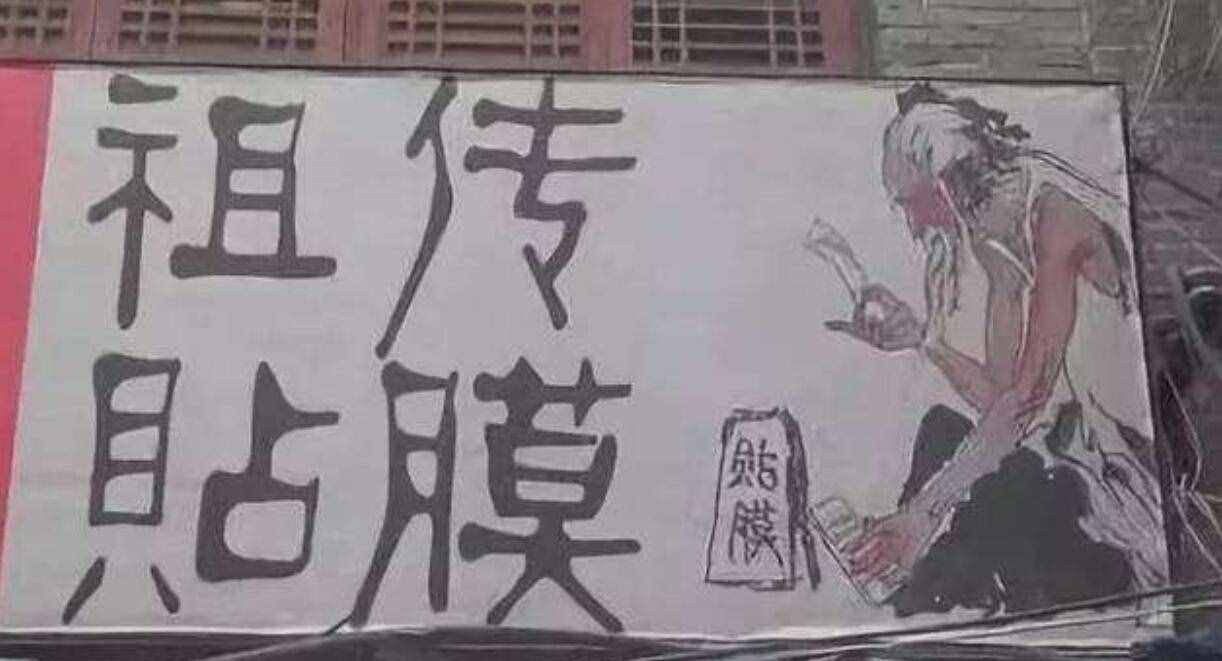 祖传
貼膜
贴膜